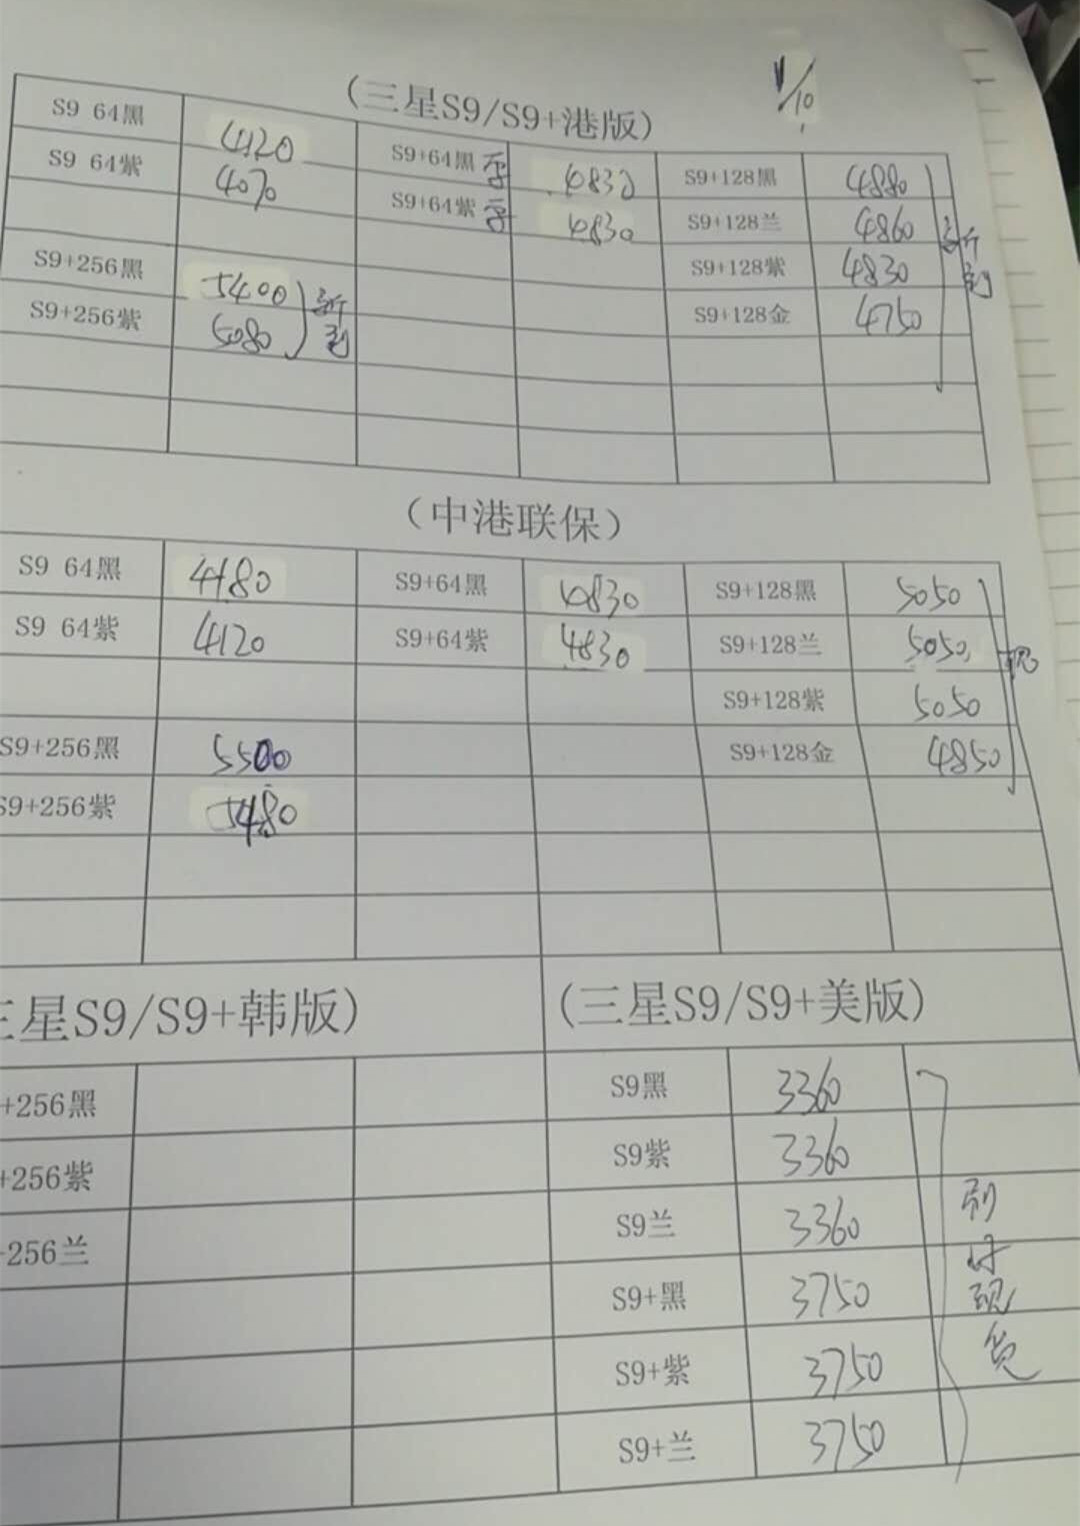 (三星S9/S9+港版)
S9 64黑 4120 S9+64黑 4830 S9+128黑 4880
S9 64紫 4070 S9+64紫 4830 S9+128兰 4860
S9+128紫 4830
S9+256黑 5400 S9+128金 4750
S9+256紫 5080
新到
新到
(中港联保)
S9 64黑 4180 S9+64黑 4830 S9+128黑 5050
S9 64紫 4120 S9+64紫 4830 S9+128兰 5050
S9+128紫 5050
S9+256黑 5500 S9+128金 4850
S9+256紫 5480
现
三星S9/S9+韩版) (三星S9/S9+美版)
+256黑 S9黑 3360
+256紫 S9紫 3360
256兰 S9兰 3360
S9+黑 3750
S9+紫 3750
S9+兰 3750
现货